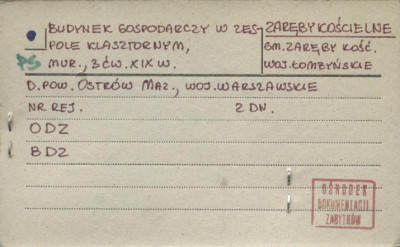 BUDYNEK GOSPODARCZY W ZES-
POLE KLASZTORNYM,
MUR., 3 ĆW. XIX W.
PS
ZARĘBY KOŚCIELNE
GM. ZARĘBY KOŚC.
WOJ. ŁOMŻYŃSKIE
D. POW. OSTRÓW MAZ., WOJ. WARSZAWSKIE
NR REJ. Z DN.
ODZ
BDZ
OŚRODEK
DOKUMENTACJI
ZABYTKÓW